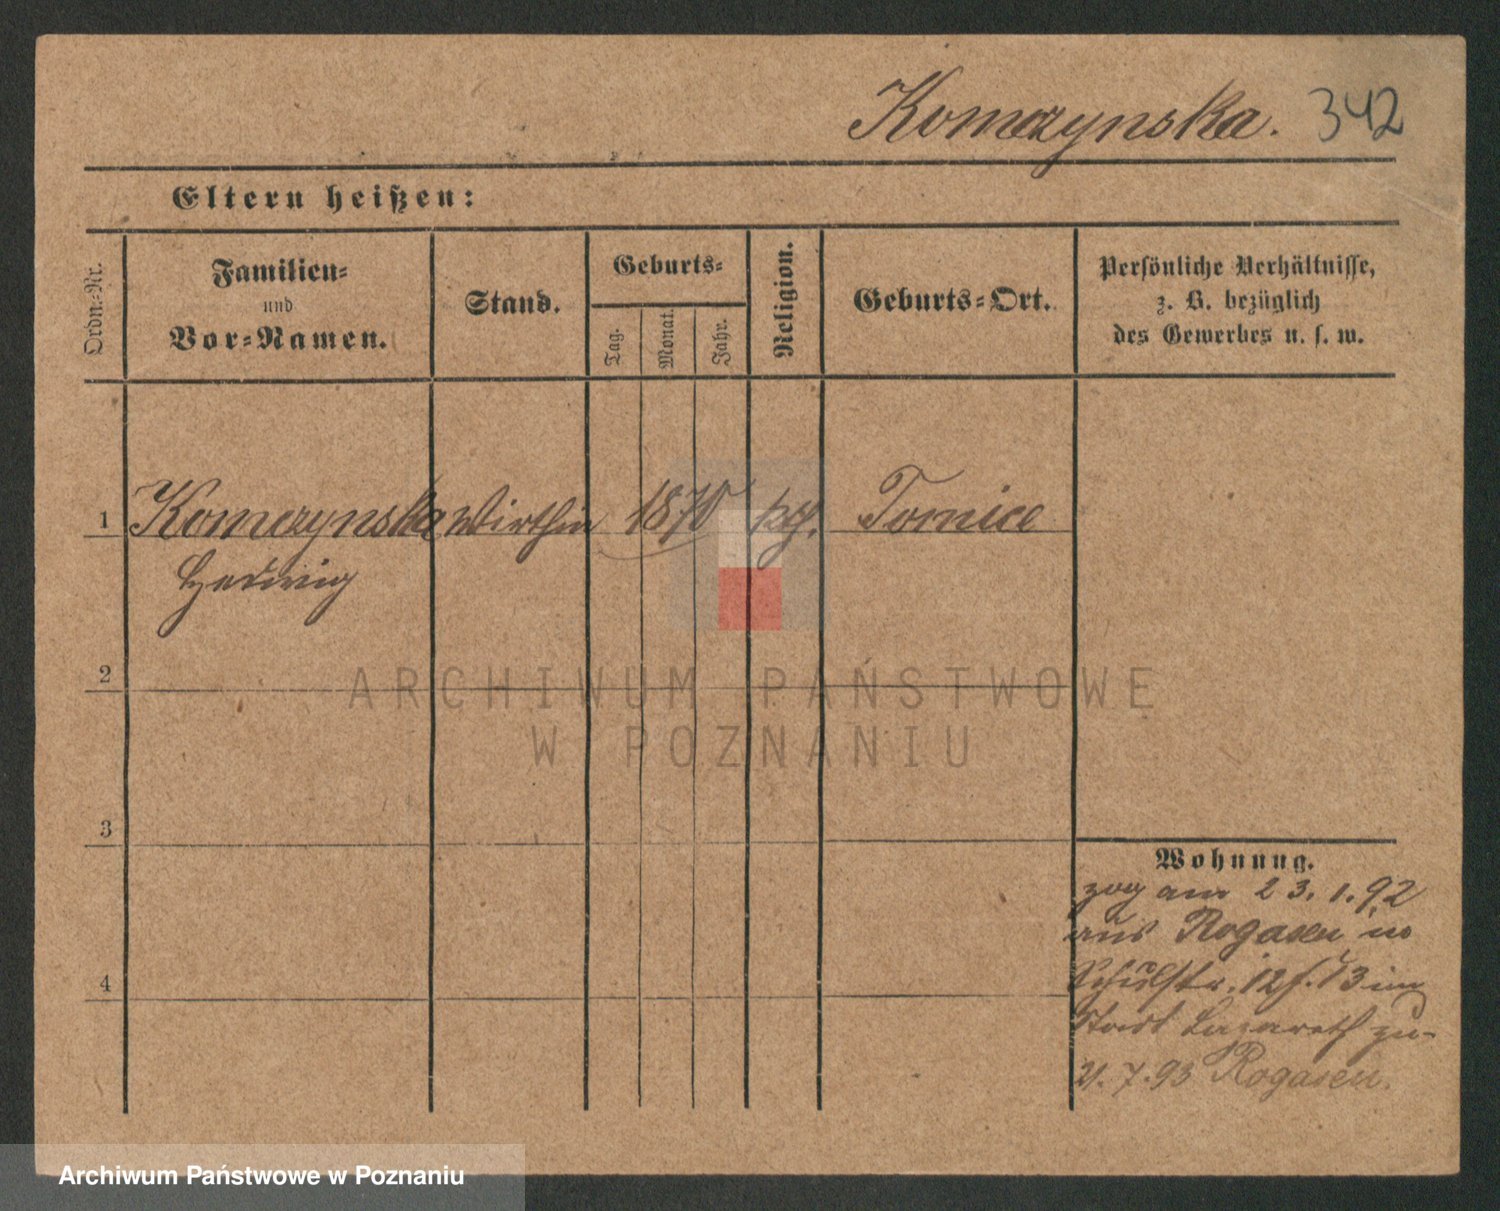 Komczynska. 342
Eltern heißen:
Ordn.-Nr.
Familien-
und
Vor-Namen.
Stand.
Geburts-
Tag.
Monat.
Jahr.
Religion.
Geburts-Ort.
Persönliche Verhältnisse,
z. B. bezüglich
des Gewerbes u. s. w.
1 Komczynska Wirthin 1870 Tornice
Hedwig
2
ARCHIWUM PAŃSTWOWE
W POZNANIU
3
Wohnung.
zog am 23.1.92
aus Rogasen in
4
Schulstr. 12/13 im
Stadt Lazareth zu-
21.7.93 Rogasen.
Archiwum Państwowe w Poznaniu